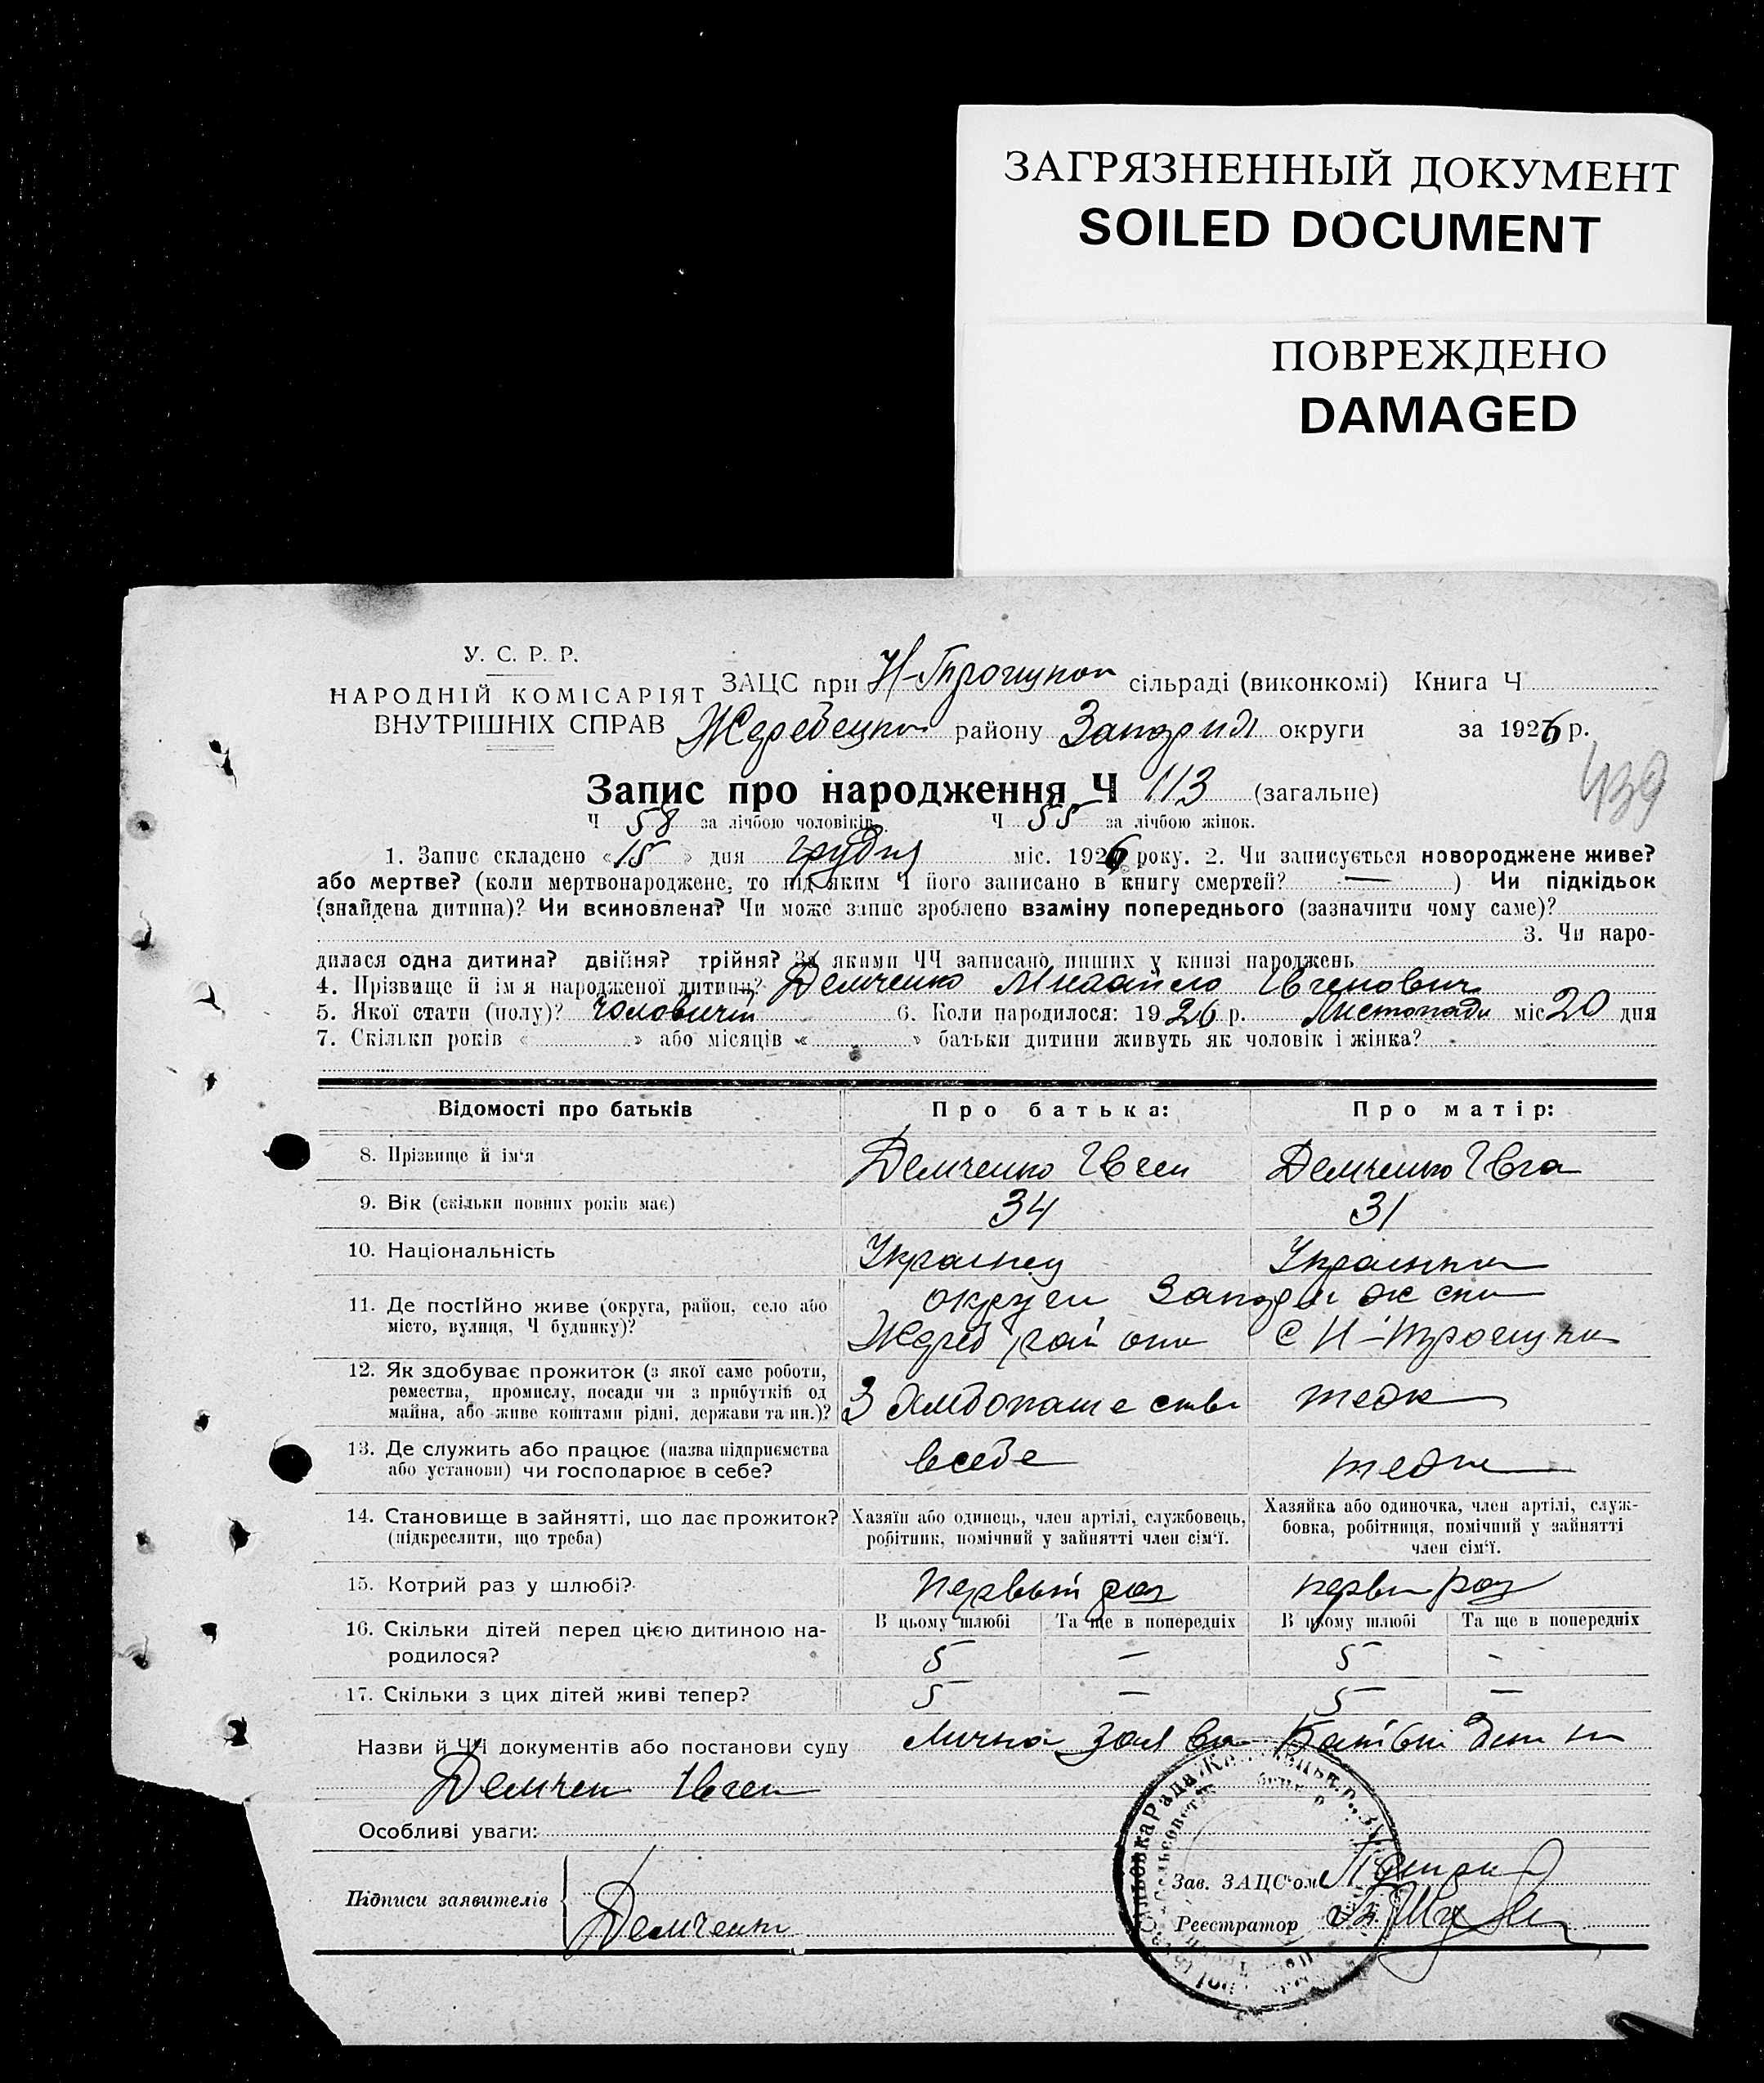 ЗАГРЯЗНЕННЫЙ ДОКУМЕНТ
SOILED DOCUMENT
ПОВРЕЖДЕНО
DAMAGED
У. С. Р. Р.
НАРОДНІЙ КОМІСАРІЯТ
ВНУТРІШНІХ СПРАВ
ЗАЦС при Н-Трошукои сільраді (виконкомі) Книга Ч
району округи за 1926 р.
439
Запис про народження Ч 113 (загальне)
Ч 58 за лічбою чоловіків. Ч 55 за лічбою жінок.
1. Запис складено «15» дня грудня міс. 1926 року. 2. Чи записується новороджене живе?
або мертве? (коли мертвонароджене, то під яким Ч його записано в книгу смертей? — ) Чи підкідьок
(знайдена дитина)? Чи всиновлена? Чи може запис зроблено взаміну попереднього (зазначити чому саме)?
3. Чи наро-
дилася одна дитина? двійня? трійня? За якими ЧЧ записано инших у книзі народжень
4. Прізвище й ім'я народженої дитини? Демченко Михайло Івгенович
5. Якої стати (полу)? Чоловичій 6. Коли народилося: 1926 р. Листопада міс 20 дня
7. Скільки років « » або місяців « » батьки дитини живуть як чоловік і жінка?
Відомості про батьків Про батька: Про матір:
8. Прізвище й ім'я Демченко Івген Демченко Івга
9. Вік (скільки повних років має) 34 31
10. Національність Украинец Украинка
11. Де постійно живе (округа, район, село або
місто, вулиця, Ч будинку)?
округи
12. Як здобуває прожиток (з якої саме роботи,
ремества, промислу, посади чи з прибутків од
майна, або живе коштами рідні, держави та ин.)?
13. Де служить або працює (назва підприємства
або установи) чи господарює в себе?
вседе
14. Становище в зайнятті, що дає прожиток?
(підкреслити, що треба)
Хазяїн або одинець, член артілі, службовець,
робітник, помічний у зайнятті член сім'ї.
Хазяйка або одиночка, член артілі, служ-
бовка, робітниця, помічний у зайнятті
член сім'ї.
15. Котрий раз у шлюбі? первый раз первы раз
16. Скільки дітей перед цією дитиною на-
родилося?
В цьому шлюбі Та ще в попередніх В цьому шлюбі Та ще в попередніх
5 — 5 -
17. Скільки з цих дітей живі тепер? 5 — 5 —
Назви й ЧЧ документів або постанови суду Лична заява
Демчен Івген
Особливі уваги:
Підписи заявителів
Демченко
Зав. ЗАЦС'ом
Реєстратор